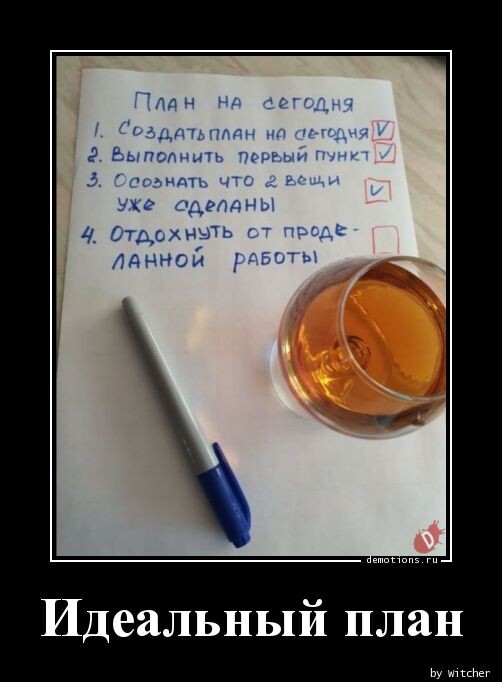 План на сегодня
1. Создать план на сегодня
2. Выполнить первый пункт
3. Осознать что 2 вещи
уже сделаны
4. Отдохнуть от проде-
ланной работы
demotions.ru
Идеальный план
by witcher